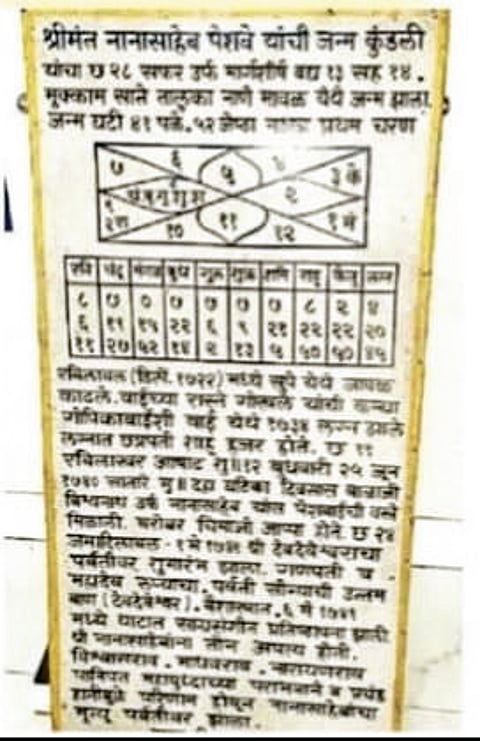 श्रीमंत नानासाहेब पेशवे यांची जन्म कुंडली
यांचा छ २८ सफर उर्फ मार्गशीर्ष वद्य १३ सह १४.
मुक्काम साते तालुका नाणे मावळ येथे जन्म झाला.
जन्म घटी ४१ पळे. ५२ जेष्ठा प्रथम चरण
७ ६ ५ ४ ३ के
२
१० ११ १२ १ मं
रवि चंद्र मंगळ बुध गुरू शुक्र शनि राहू केतू लग्न
८ ७ ० ७ ७ ७ ७ ८ २ ४
६ ११ १५ २२ ६ ९ २१ २२ २२ २०
११ २७ ५२ १४ २ १३ ५ ५० ५० ४५
(डिसें. १७२२) मध्ये सुपे येथे जावळ
काढले. वाईच्या रास्ते गोखले यांची कन्या
गोपिकाबाईशी वाई येथे १७३४ लग्न झाले
लग्नात छत्रपती शाहू हजर होते. छ ११
रबिलाखर आषाढ शु॥१२ बुधवारी २५ जून
१७४० सातारे मु॥ घटिका दिवसास बाळाजी
विश्वनाथ उर्फ नानासाहेब यांस पेशवाईची वस्त्रे
मिळाली. बरोबर चिमाजी आप्पा होते. छ २४
श्री देवदेवेश्वराचा
पर्वतीवर शुभारंभ झाला. गणपती व
महादेव रुप्याचा. पर्वती सोन्याची उत्तम
(देवदेवेश्वर). ६ मे १७४९
मध्ये थाटात प्रतिष्ठापना झाली
श्री नानासाहेबांना तीन अपत्य होती.
विश्वासराव. माधवराव. नारायणराव
पानिपत महायुद्धाच्या पराभवाने व प्रचंड
हानीमुळे परिणाम होवून नानासाहेबांचा
मृत्यू पर्वतीवर झाला.